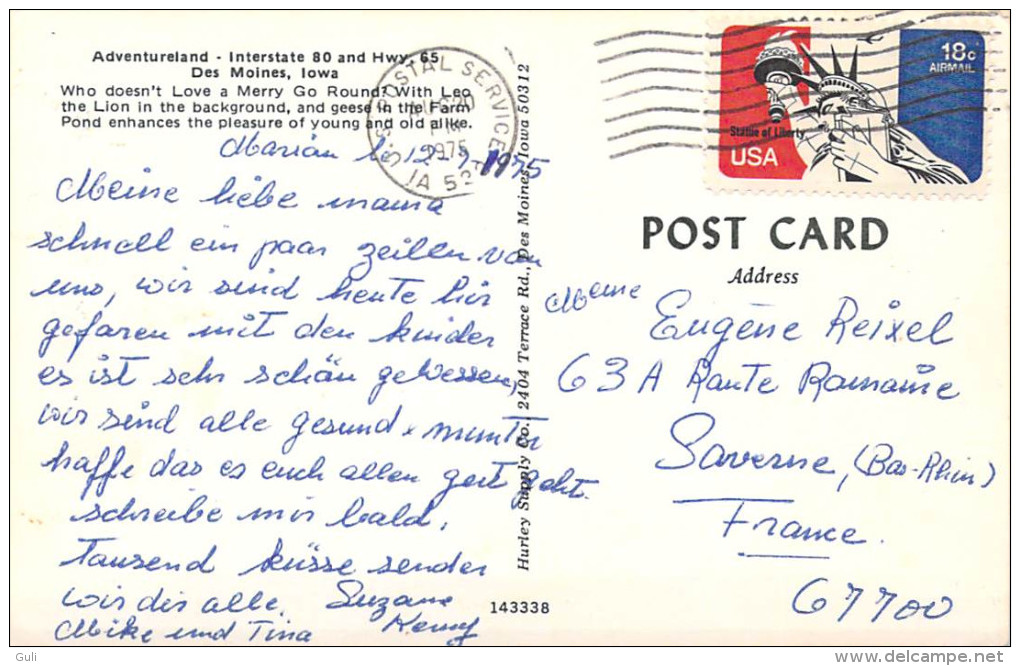 Adventureland - Interstate 80 and Hwy. 65
Des Moines, Iowa
Who doesn't Love a Merry Go Round? With Leo
the Lion in the background, and geese in the Farm
Pond enhances the pleasure of young and old alike.
Marian le 12 - 1975
Meine liebe mama
schnell ein paar zeillen vom
uns, wir sind heute hir
gefaren mit den kinder
es ist sehr schön gewessen,
wir sind alle gesund munter
hoffe das es euch allen gut geht.
schreibe mir bald,
Tausend küsse sender
wir dir alle. Suzane
Mike und Tina
U.S. POSTAL SERVICE
AUG 20
1975
IA
Hurley Supply Co., 2404 Terrace Rd., Des Moines, Iowa 50312
143338
18c
AIRMAIL
Statue of Liberty
USA
POST CARD
Address
Meme
Eugène Reixel
63 A Route Romaine
Saverne, (Bas-Rhin)
France.
67700
Guli
delcampe.net